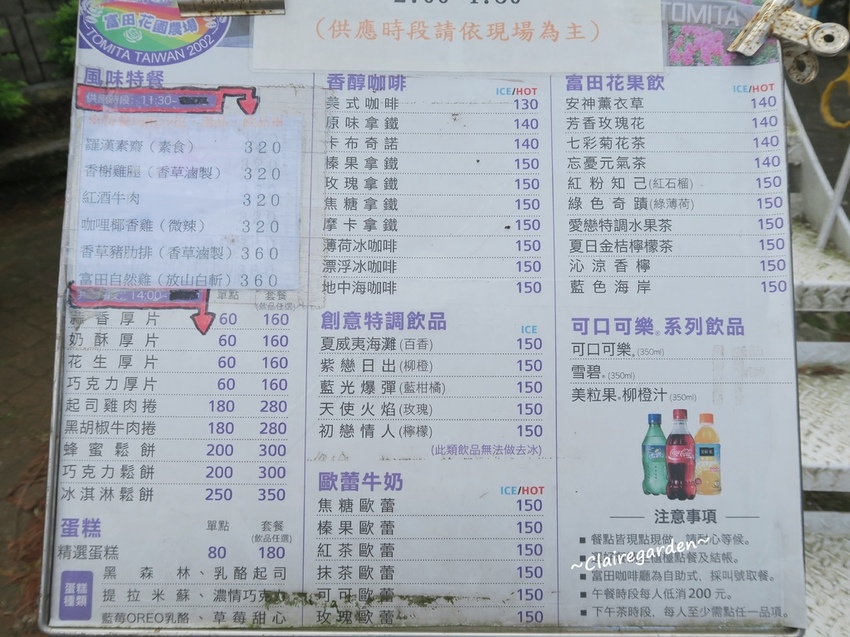 富田花園農場
TOMITA TAIWAN 2002
(供應時段請依現場為主)
TOMITA
風味特餐
11:30-
羅漢素齋（素食） 320
香榭雞腿（香草滷製） 320
紅酒牛肉 320
咖哩椰香雞（微辣） 320
香草豬肋排（香草滷製） 360
富田自然雞（放山白斬） 360
14:00-
單點 套餐
(飲品任選)
蒜香厚片 60 160
奶酥厚片 60 160
花生厚片 60 160
巧克力厚片 60 160
起司雞肉捲 180 280
黑胡椒牛肉捲 180 280
蜂蜜鬆餅 200 300
巧克力鬆餅 200 300
冰淇淋鬆餅 250 350
蛋糕 單點 套餐
(飲品任選)
精選蛋糕 80 180
蛋糕種類
黑森林、乳酪起司
提拉米蘇、濃情巧克力
藍莓OREO乳酪、草莓甜心
香醇咖啡 ICE/HOT
美式咖啡 130
原味拿鐵 140
卡布奇諾 140
榛果拿鐵 150
玫瑰拿鐵 150
焦糖拿鐵 150
摩卡拿鐵 150
薄荷冰咖啡 150
漂浮冰咖啡 150
地中海咖啡 150
創意特調飲品 ICE
夏威夷海灘(百香) 150
紫戀日出(柳橙) 150
藍光爆彈(藍柑橘) 150
天使火焰(玫瑰) 150
初戀情人(檸檬) 150
(此類飲品無法做去冰)
歐蕾牛奶 ICE/HOT
焦糖歐蕾 150
榛果歐蕾 150
紅茶歐蕾 150
抹茶歐蕾 150
可可歐蕾 150
玫瑰歐蕾 150
富田花果飲 ICE/HOT
安神薰衣草 140
芳香玫瑰花 140
七彩菊花茶 140
忘憂元氣茶 140
紅粉知己(紅石榴) 150
綠色奇蹟(綠薄荷) 150
愛戀特調水果茶 150
夏日金桔檸檬茶 150
沁涼香檸 150
藍色海岸 150
可口可樂®系列飲品
可口可樂® (350ml)
雪碧® (350ml)
美粒果®柳橙汁 (350ml)
Coca-Cola
注意事項
■ 餐點皆現點現做，請耐心等候。
櫃檯點餐及結帳。
~Clairegarden~
■ 富田咖啡廳為自助式，採叫號取餐。
■ 午餐時段每人低消200元。
■ 下午茶時段，每人至少需點任一品項。